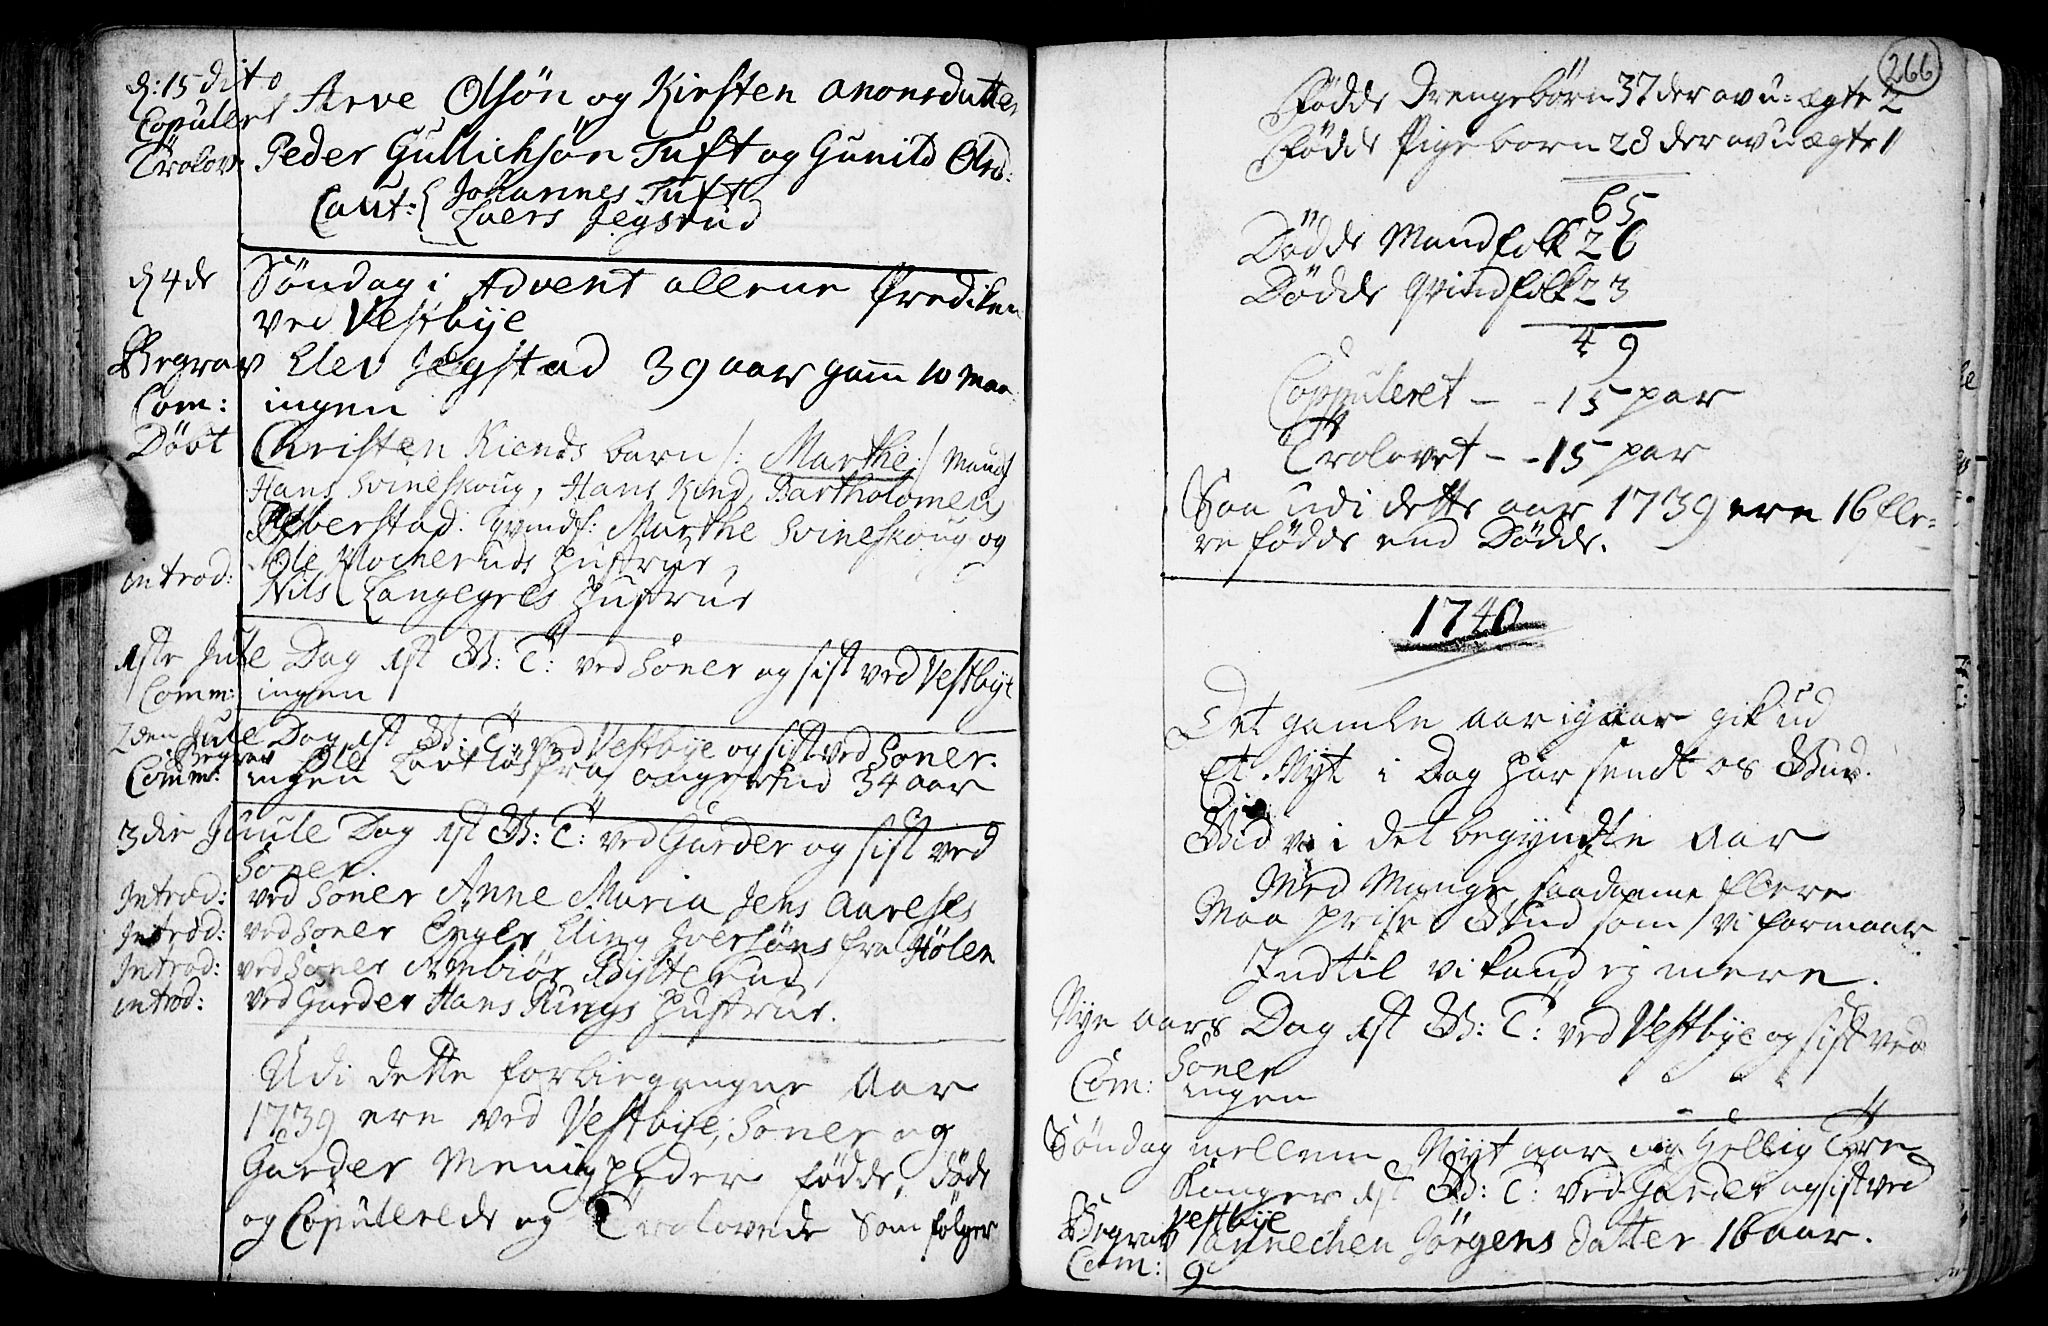 d: 15 dito
Copulert Arve Olsøn og Kirsten anonsdatter
Trolov: Peder Gullichsøn Tuft og Gunild Olsd:
Caut: { Johannes Tuft
Laers Jegsrud
d 4de Søndag i Advent allene Prediken
ved Vestbije
Begrav Elev Jegstad 39 aar gam 10 maa
Com: ingen
Døbt Christen Kiends barn /: Marthe :/ Mands
Hans Svineskoug, Hans Kind, Bartholomeus
Qvindf: Marthe Svineskoug og
Ole Mocheruds Hustrue,
introd: Nils Langegres Hustrue
1ste Jule Dag 1st G: T: ved Soner og sist ved Vestbije
Comm: ingen
2den Jule Dag 1st G: T: ved Vestbije og sist ved Soner.
Begrav Ole fra 34 aar
Comm: ingen
3die Juule Dag 1st G: T: ved Garder og sist ved
Soner
Introd: ved Soner Anne Maria Jens Aareses
Introd: ved Soner Engler Eling Iversøns fra Hølen
Introd: ved Soner Anbiør Bytterud
introd: ved Garder Hans Rings Hustrue.
Udi dette forbiegangne Aar
1739 ere ved Vestbije, Soner og
Garder Menigheder fødde, døde
og Copulerede og Trolovede som følger
266
Fødde Drengebørn 37 der av u: ægte 2
Fødde Pigeborn 28 der av uægte 1
65
Dødde Mandfolk 26
Dødde Qvindfolk 23
49
Coppuleret - - 15 par
Trolovet - - 15 par
Saa udi dette aar 1739 ere 16 fle-
re fødde end Dødde.
1740
Det gamle aar igaar gik ud
Et Nyt i Dag har sendt os Gud.
Gid vi i det begyndte Aar
Med Mange saadanne flere
Maa prise Gud som vi formaar
Indtil vi kand ej mere.
Nye aars Dag 1st G: T: ved Vestbije og sist ved
Soner
Com: ingen
Søndag mellem Nyt aar og Hellig Tre
Konger 1st G: T: ved Garder og sist ved
Vestbije
Begrav annechen Jørgens datter 16 aar.
Com: 9